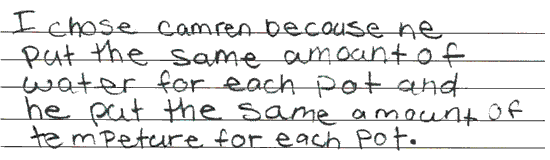 I chose camren because he
put the same amount of
water for each pot and
he put the same amount of
tempeture for each pot.